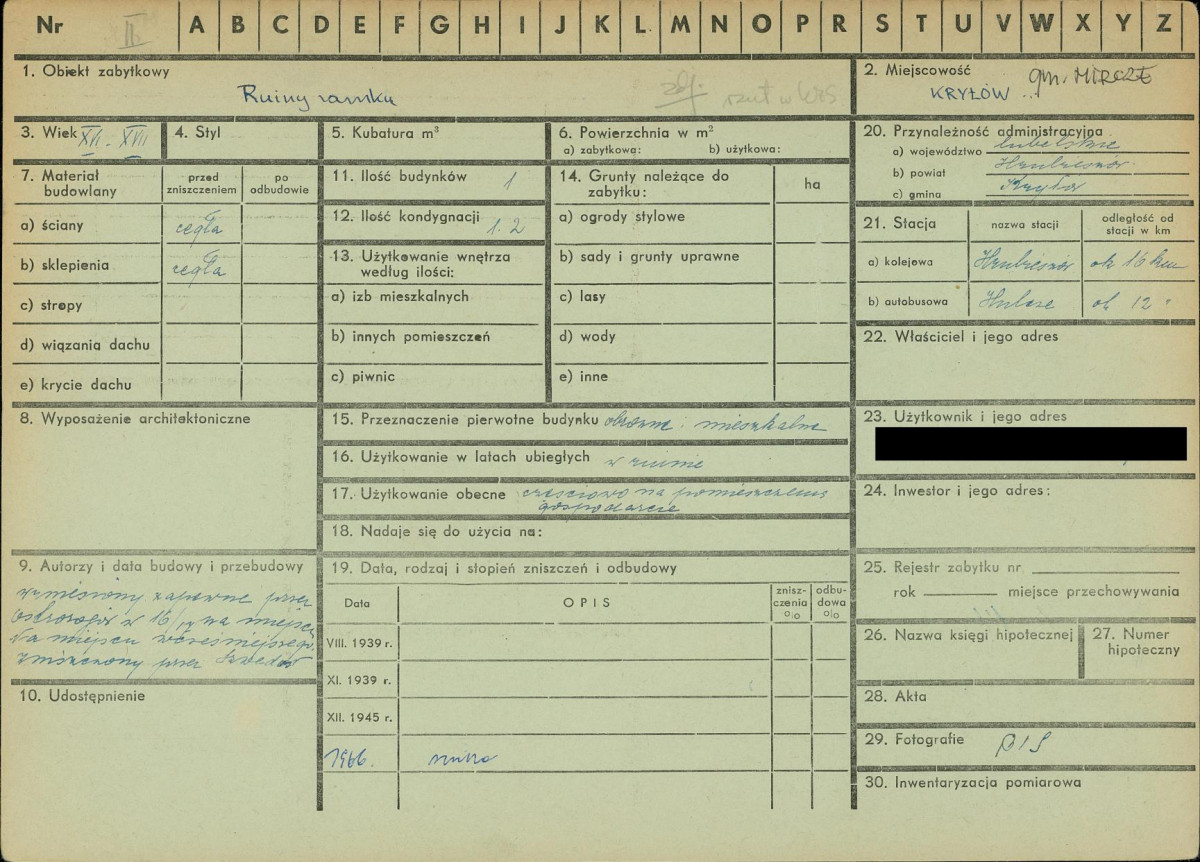 Nr II A B C D E F G H I J K L M N O P R S T U V W X Y Z
1. Obiekt zabytkowy
Ruiny zamku
zdj. rzut w
2. Miejscowość gm. MIRCZE
KRYŁÓW
3. Wiek XVI - XVII
4. Styl
5. Kubatura m³
6. Powierzchnia w m²
a) zabytkową: b) użytkową:
20. Przynależność administracyjna
a) województwo lubelskie
b) powiat Hrubieszów
c) gmina Kryłów
7. Materiał budowlany
przed zniszczeniem
po odbudowie
a) ściany cegła
b) sklepienia cegła
c) stropy
d) wiązania dachu
e) krycie dachu
11. Ilość budynków 1
12. Ilość kondygnacji 1.2
13. Użytkowanie wnętrza
według ilości:
a) izb mieszkalnych
b) innych pomieszczeń
c) piwnic
14. Grunty należące do
zabytku:
ha
a) ogrody stylowe
b) sady i grunty uprawne
c) lasy
d) wody
e) inne
21. Stacja
nazwa stacji
odległość od
stacji w km
a) kolejowa Hrubieszów ok 16 km
b) autobusowa ok 12 "
22. Właściciel i jego adres
8. Wyposażenie architektoniczne
15. Przeznaczenie pierwotne budynku obronne - mieszkalne
16. Użytkowanie w latach ubiegłych w ruinie
17. Użytkowanie obecne częściowo na pomieszczenia
gospodarcze
18. Nadaje się do użycia na:
23. Użytkownik i jego adres
24. Inwestor i jego adres:
9. Autorzy i data budowy i przebudowy
wzniesiony zapewne przez
Ostrorogów w 16/17 na miejscu
na miejscu wcześniejszego,
zniszczony przez Szwedów
10. Udostępnienie
19. Data, rodzaj i stopień zniszczeń i odbudowy
Data
OPIS
znisz-
czenia
%
odbu-
dowa
%
VIII. 1939 r.
XI. 1939 r.
XII. 1945 r.
1966. ruina
25. Rejestr zabytku nr
rok miejsce przechowywania
26. Nazwa księgi hipotecznej
27. Numer
hipoteczny
28. Akta
29. Fotografie PIS
30. Inwentaryzacja pomiarowa